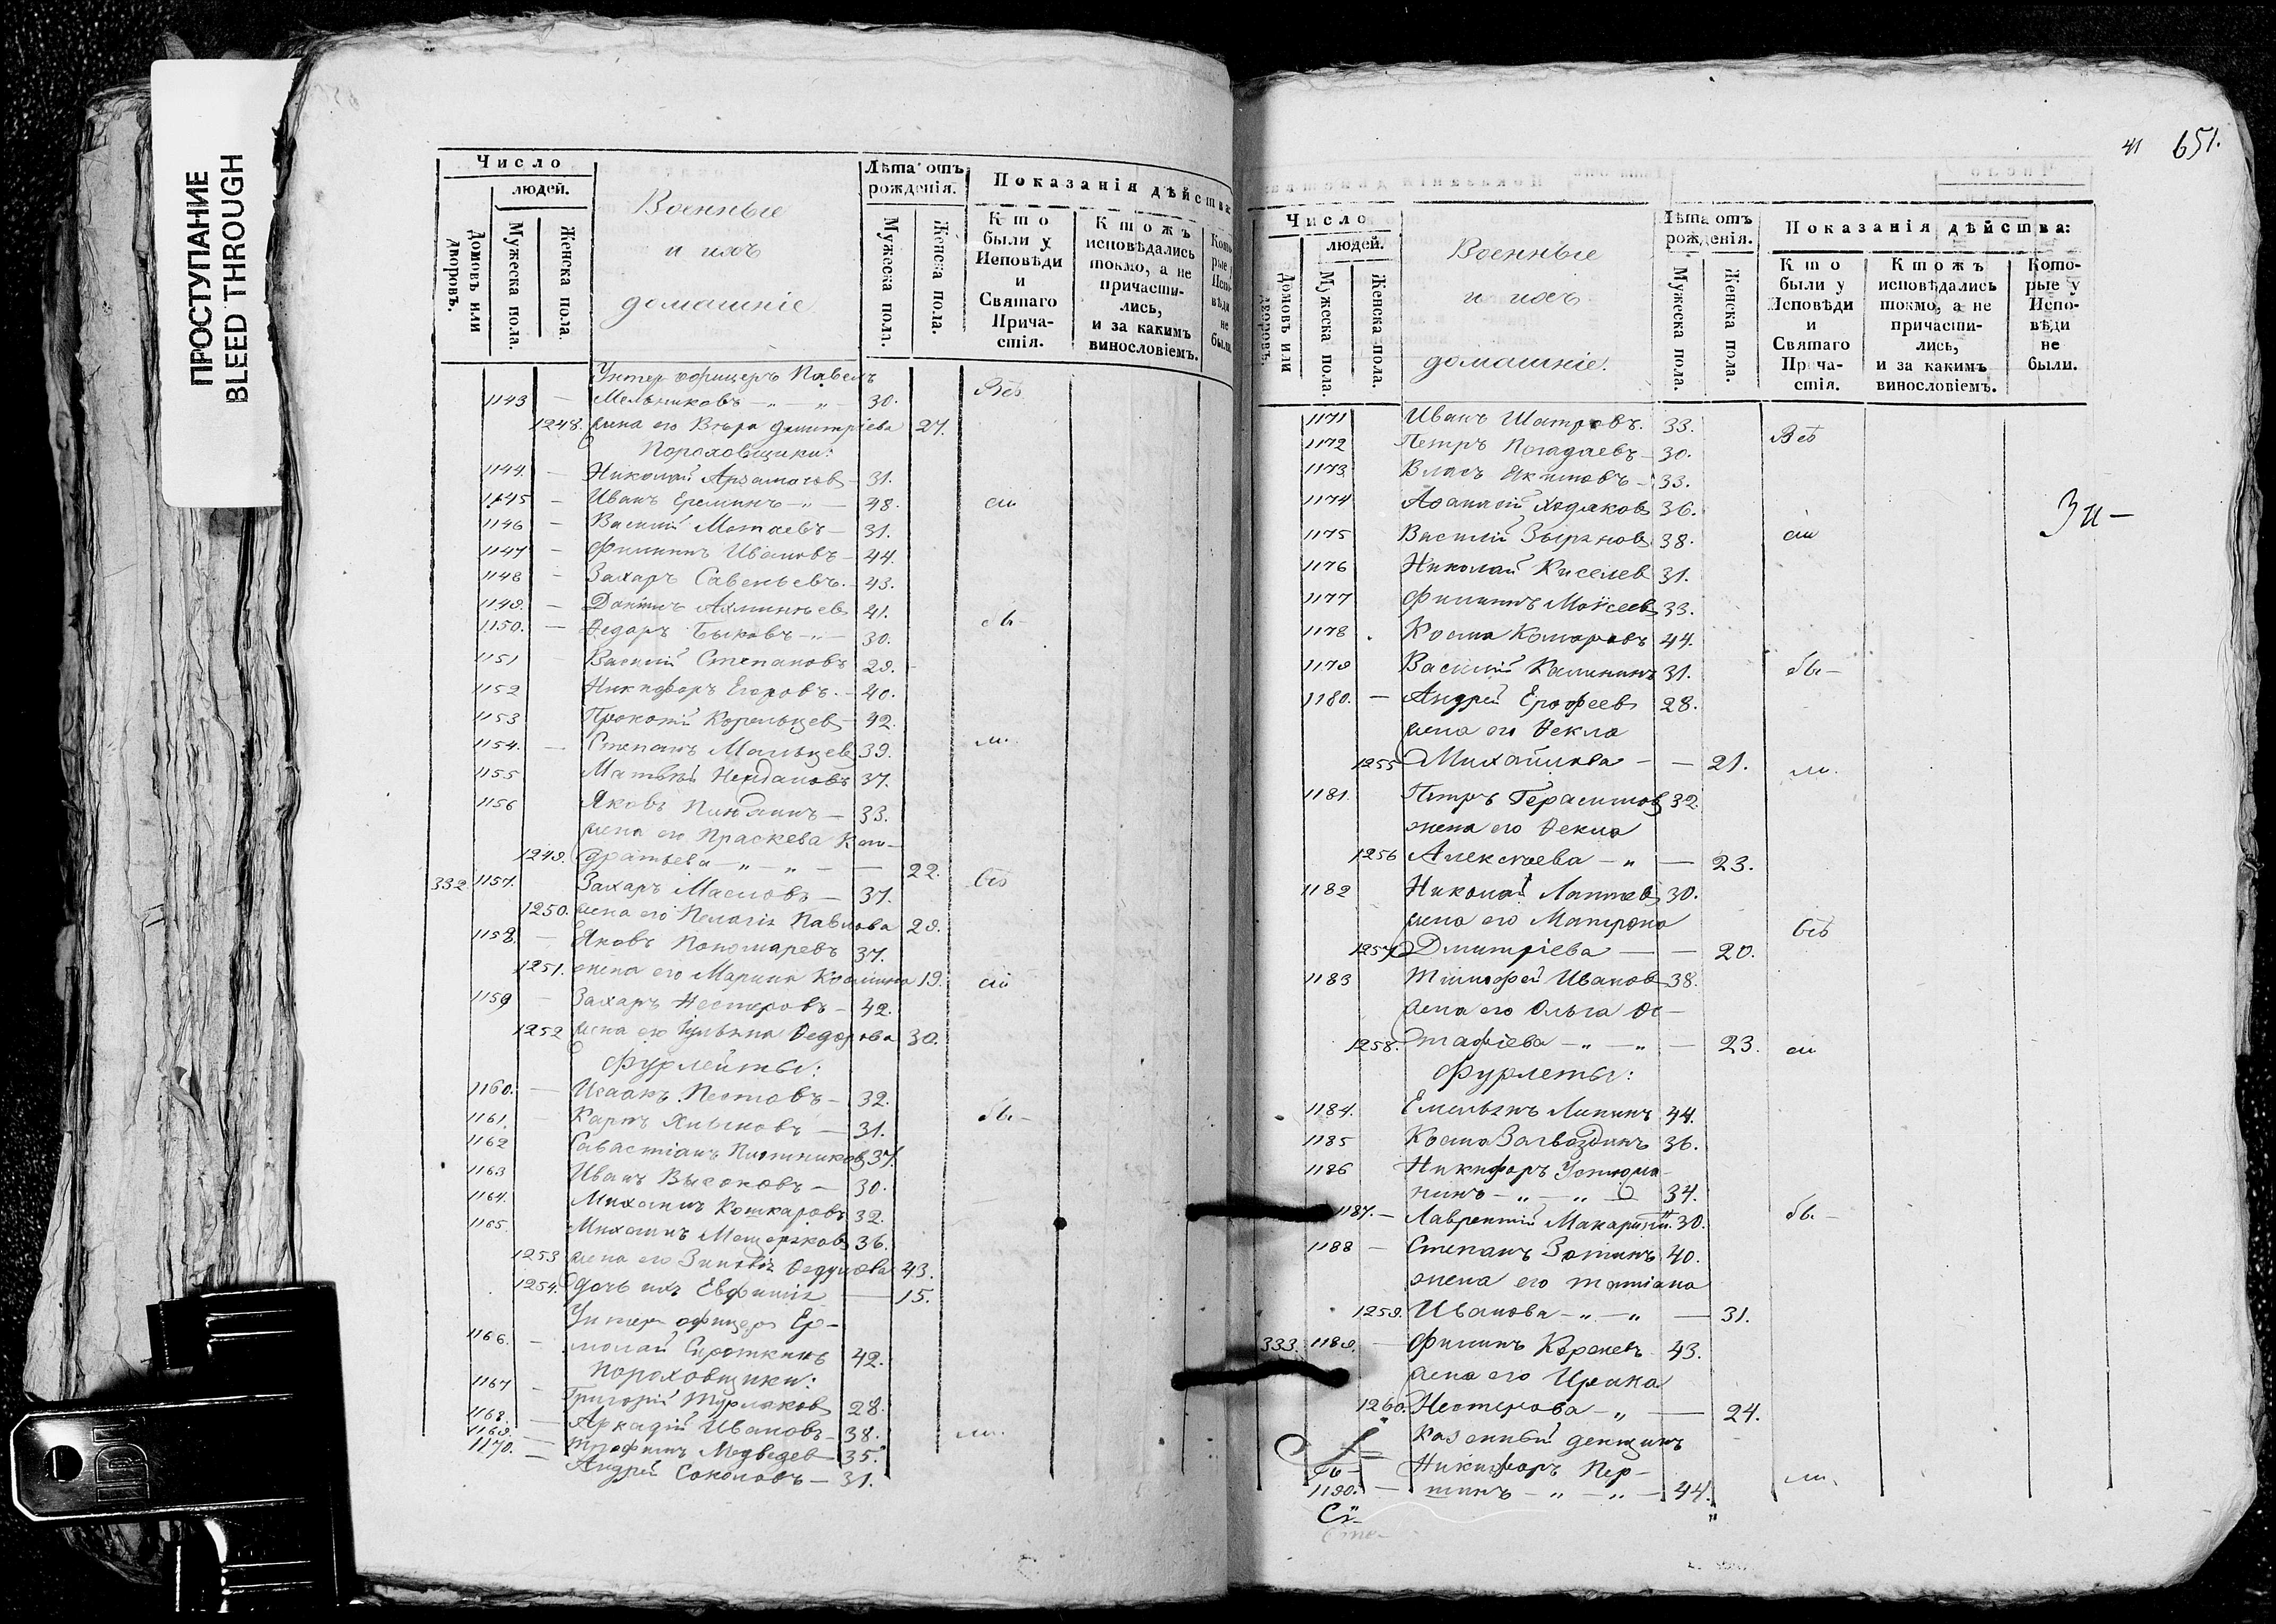 ПРОСТУПАНИЕ
BLEED THROUGH
Число
людей.
Домовъ или дворовъ.
Мужеска пола.
Женска пола.
Военные
и ихъ
домашніе
Лѣта отъ рожденія.
Мужеска пола.
Женска пола.
Показанія дѣйства
Кто были у Исповѣди и Святаго Причастія.
Ктожъ исповѣдались токмо, а не причастились, и за какимъ винословіемъ.
Которые у Исповѣди не были.
Унтер офицеръ Павелъ
1143 — Мельниковъ — „ — „ — 30. Всѣ
1248. жена его Вѣра Димитріева 27.
Пороховщики:
1144. — Николай Арзамасов 31.
1145 — Иванъ Ереминъ — „ — 48. сіи
1146 — Василій Мотаевъ — 31.
1147 — Филиппъ Ивановъ — 44.
1148 — Захаръ Савельевъ. — 43.
1149. — 41.
1150. — Ѳедоръ Быковъ — „ — 30. бы-
1151 Василій Степановъ 29.
1152 Никифоръ Егоровъ. — 40.
1153 Прокопій Корельцев 42.
1154. — Степанъ Мальцев 39. ли.
1155 Матвѣй 37.
1156 Яковъ — 33.
жена его Праскева Кон-
1249. дратьева — „ — „ — — 22.
332 1157. Захаръ Масловъ — 37. Всѣ
1250. жена его Пелагія Павлова 29.
1158. — Яковъ Пономаревъ 37.
1251. жена его Марина Козмина 19. сіи
1159 — Захаръ Нестеровъ — 42.
1252 жена его Ульяна Ѳедорова 30.
Фурлейты:
1160. — Исаакъ Пестовъ — 32.
1161. — Карпъ — 31. бы-
1162 Савастіанъ 37.
1163 Иванъ Высоковъ — 30.
1164. Михаилъ Кошкаровъ 32.
1165. Михаилъ Мещеряков 36.
1253 жена его Зиновія 43.
1254. дочь ихъ Евфимія — 15.
Унтер офицеръ Ер-
1166. — молай Сироткинъ 42.
Пороховщики:
1167 — Григорій Турлаков 28.
1168. — Аркадій Ивановъ — 38. ли.
1169. — Трофимъ Медведев — 35.
1170. — Андрей Соколовъ — 31.
41 651.
Число
людей.
Домовъ или дворовъ.
Мужеска пола.
Женска пола.
Военные
и ихъ
домашніе.
Лѣта отъ рожденія.
Мужеска пола.
Женска пола.
Показанія дѣйства:
Кто были у Исповѣди и Святаго Причастія.
Ктожъ исповѣдались токмо, а не причастились, и за какимъ винословіемъ.
Которые у Исповѣди не были.
1171 Иванъ Шатровъ. 33. Всѣ
1172 Петръ Погадаевъ 30.
1173 Власъ Якимовъ — 33.
1174 Аѳанасій Ходяков 36.
1175 Василій Зырянов 38. сіи
1176 Николай Киселев 31.
1177 Филиппъ Моисеев 33.
1178 Козма Комаровъ 44.
1179 Василій Калининъ 31. бы-
1180. — Андрей Ерофеев 28.
жена его Ѳекла
1255 Михайлова — — 21. ли.
1181. Петръ Герасимов 32.
жена его Ѳекла
1256 Алексѣева — „ — 23.
1182 Николай Лаптев 30.
жена его Матрона
1257 Дмитріева — — 20. Всѣ
1183 Тимофей Иванов 38.
жена его Ольга Ос-
1258. тафіева — „ — „ — 23. сіи
Фурлеты:
1184. Емельянъ Липинъ 44.
1185 Козма Загвоздинъ 36.
1186 Никифоръ Устюжа-
нинъ — „ — „ — 34.
1187. — Лаврентій 30. бы-
1188 — Степанъ Зотинъ 40.
жена его Татіана
1259. Иванова — „ — „ — 31.
333. 1189. — Филипъ Кореневъ 43.
жена его Ирина
1260. Нестерова — „ — 24.
Казенный денщикъ
Никифоръ Пер-
1190. — шинъ — „ — „ — 44. ли.